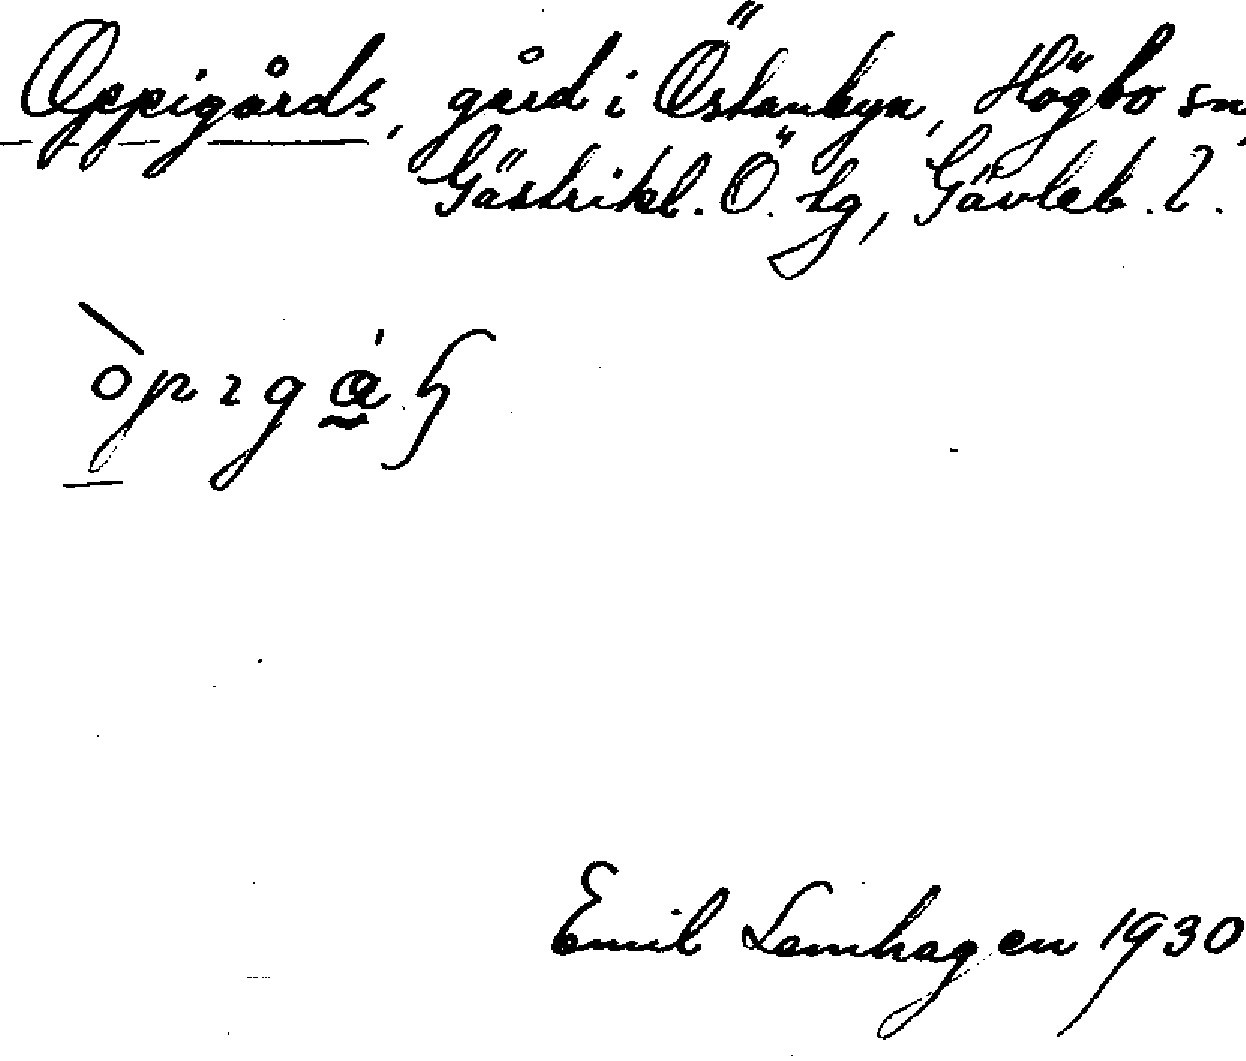 Oppigårds, gård i Östanbyn, Högbo sn,
Gästrikl. Ö. tg, Gävleb. l.
Emil Lamhagen 1930